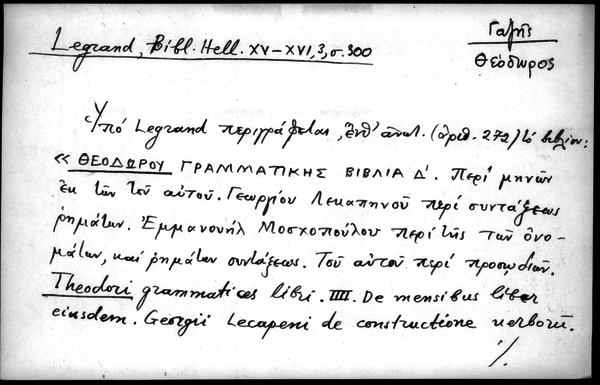 Legrand, Bibl. Hell. XV–XVI, 3, σ. 300
Γαζῆς
Θεόδωρος
Ὑπό Legrand περιγράφεται, ἔνθ' ἀνωτ. (ἀριθ. 272) τό βιβλίον:
« ΘΕΟΔΩΡΟΥ ΓΡΑΜΜΑΤΙΚΗΣ ΒΙΒΛΙΑ Δ'. Περί μηνῶν
ἐκ τῶν τοῦ αὐτοῦ. Γεωργίου Λεκαπηνοῦ περί συντάξεως
ῥημάτων. Ἐμμανουήλ Μοσχοπούλου περί τῆς τῶν ὀνο-
μάτων, καί ῥημάτων συντάξεως. Τοῦ αὐτοῦ περί προσωδιῶν.
Theodori grammatices libri. IIII. De mensibus liber
eiusdem. Georgii Lecapeni de constructione uerborū.
./.